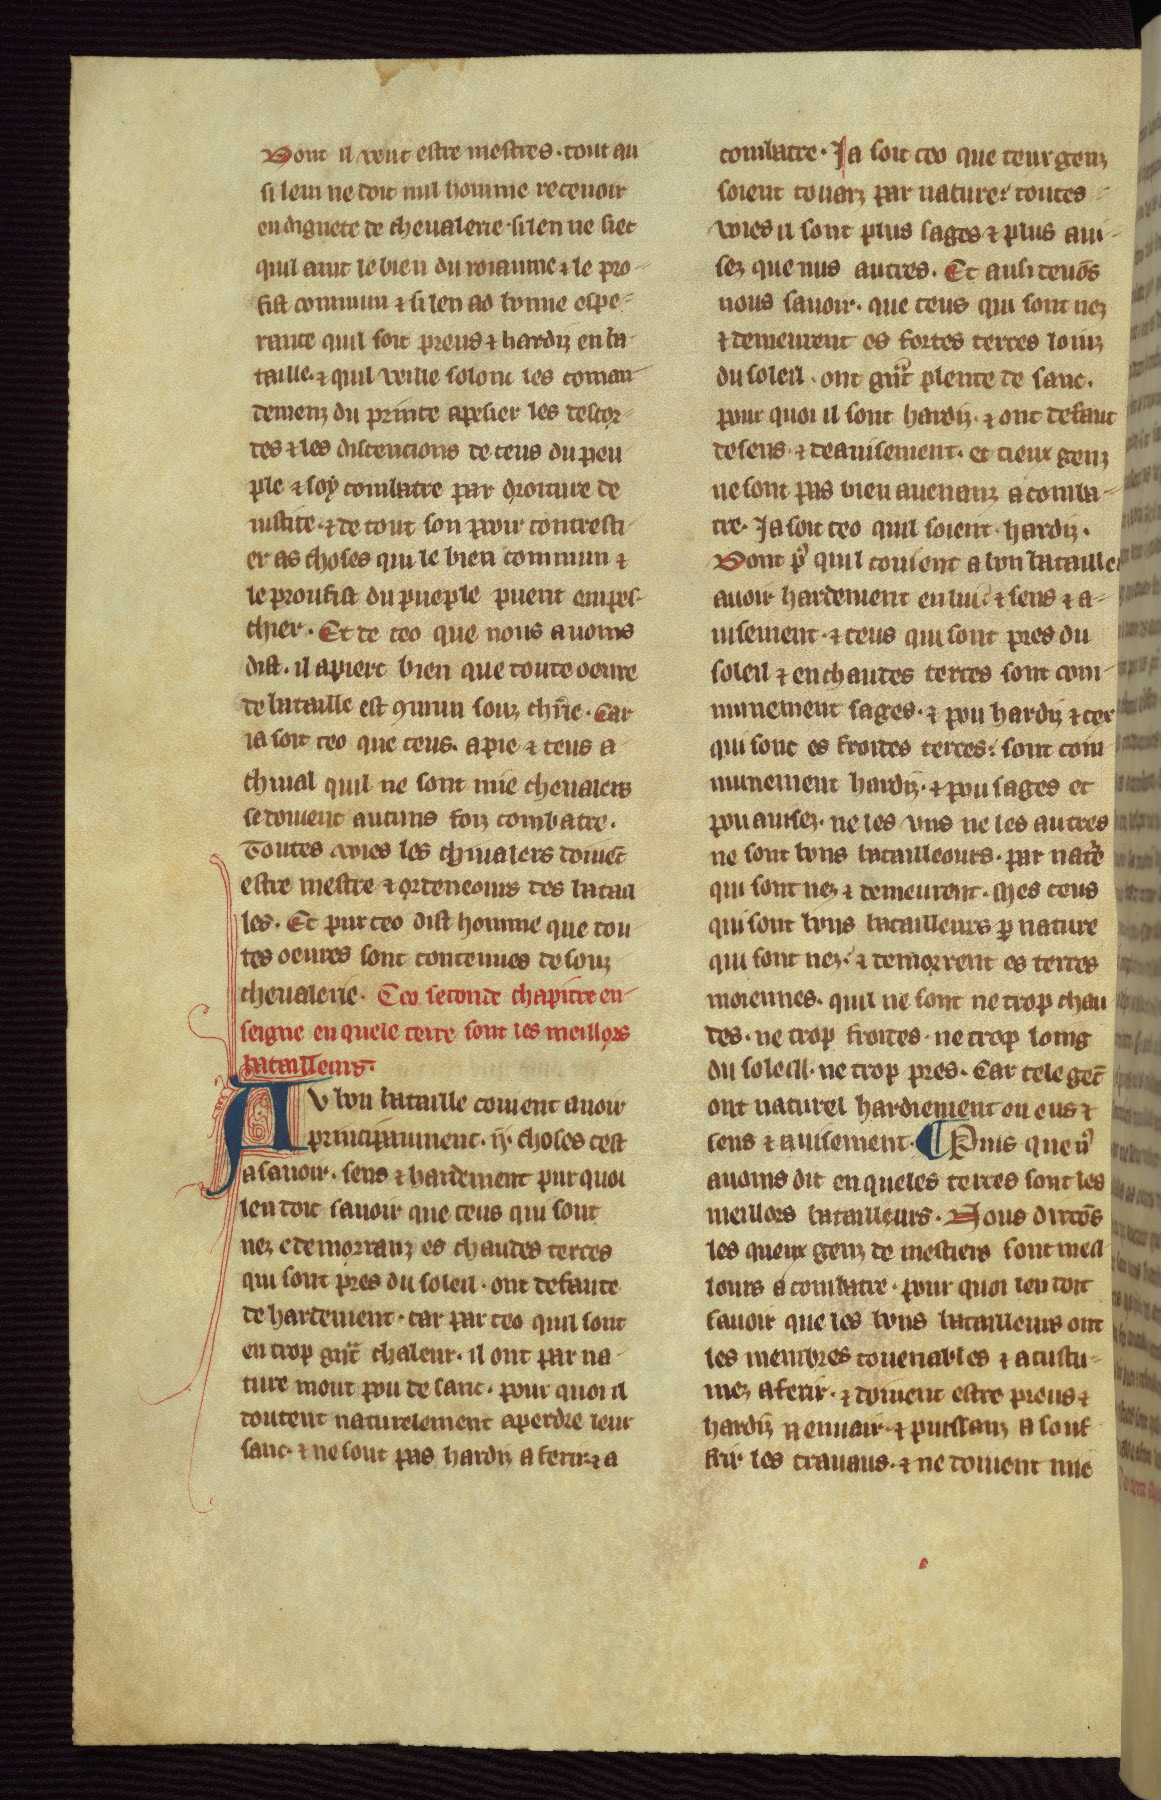 Dont il veut estre mestres. tout au
si lem ne doit nul homme recevoir
en dignete de chevalerie. si len ne siet
quil aint le bien du roiaume ⁊ le pro-
fist commun ⁊ si len ad bonne espe-
rance quil soit preus ⁊ hardiz en ba-
taille. ⁊ quil veille solom les coman-
demenz du prince apesier les descor-
des ⁊ les discencions de ceus du peu
ple ⁊ soy combatre par droiture de
iustice. ⁊ de tout son pooir contresti-
er as choses qui le bien commun ⁊
le proufist du pueple puent empes-
chier. Et de ceo que nous avoms
dist. il apiert bien que toute oevre
de bataille est 9mun souz chr̄ie. Car
ia soit ceo que ceus. a pie ⁊ ceus a
chival quil ne sont mie chevalers
se doivent aucuns foiz combatre.
Toutes voies les chivalers doivēt
estre mestre ⁊ ordeneours des batail
les. Et pur ceo dist homme que tou-
tes oevres sont contenues desouz
chevalerie. Ceo seconde chapitre en-
seigne en quele terre sont les meillors
batailleurs.
AV bon bataille covient avoir
principaument. ij. choses cest
a savoir. sens ⁊ hardement pur quoi
len doit savoir que ceus qui sont
nez e demorranz es chaudes terres
qui sont pres du soleil. ont defaute
de hardement. car par ceo quil sont
en trop gn̄t chaleur. il ont par na-
ture mout pou de sanc. pour quoi il
doutent naturelement a perdre leur
sanc. ⁊ ne sont pas hardiz a ferir ⁊ a
combatre. Ja soit ceo que teux genz
soient couarz par nature. toutes
voies il sont plus sages ⁊ plus avi-
sez que nus autres. Et ausi devōs
nous savoir. que ceus qui sont nez
⁊ demeurent es fortes terres loinz
du soleil. ont gn̄t plente de sanc.
pour quoi il sont hardiz. ⁊ ont defaut
de sens. ⁊ de avisement. et tieux genz
ne sont pas bien avenanz a comba-
tre. Ja soit ceo quil soient hardiz.
Dont pͬ quil covient a bon batailler
avoir hardement en lui. ⁊ sens ⁊ a-
visement. ⁊ ceus qui sont pres du
soleil ⁊ en chaudes terres sont com-
munement sages. ⁊ pou hardiz ⁊ cer
qui sont es froides terres. sont com-
munement hardiz. ⁊ pou sages et
pou avisez. ne les uns ne les autres
ne sont bons batailleours. par natͬe
qui sont nez ⁊ demeurent. Mes ceus
qui sont bons batailleurs ꝑ nature
qui sont nez. ⁊ demorrent es terres
moiennes. quil ne sont ne trop chau
des. ne trop froides. ne trop loing
du soleill. ne trop pres. Car tele gēt
ont naturel hardiement en eus ⁊
sens ⁊ avisement. ¶ Puis que nͬ
avoms dit en queles terres sont les
meillors batailleurs. Nous dirrōs
les queux genz de mestiers sont meil
lours a combatre. pour quoi len doit
savoir que les bons batailleurs ont
les membres covenables ⁊ acustu-
mez a ferir. ⁊ doivent estre preus ⁊
hardiz a envair. ⁊ puissanz a souf
frir les travaus. ⁊ ne doivent mie